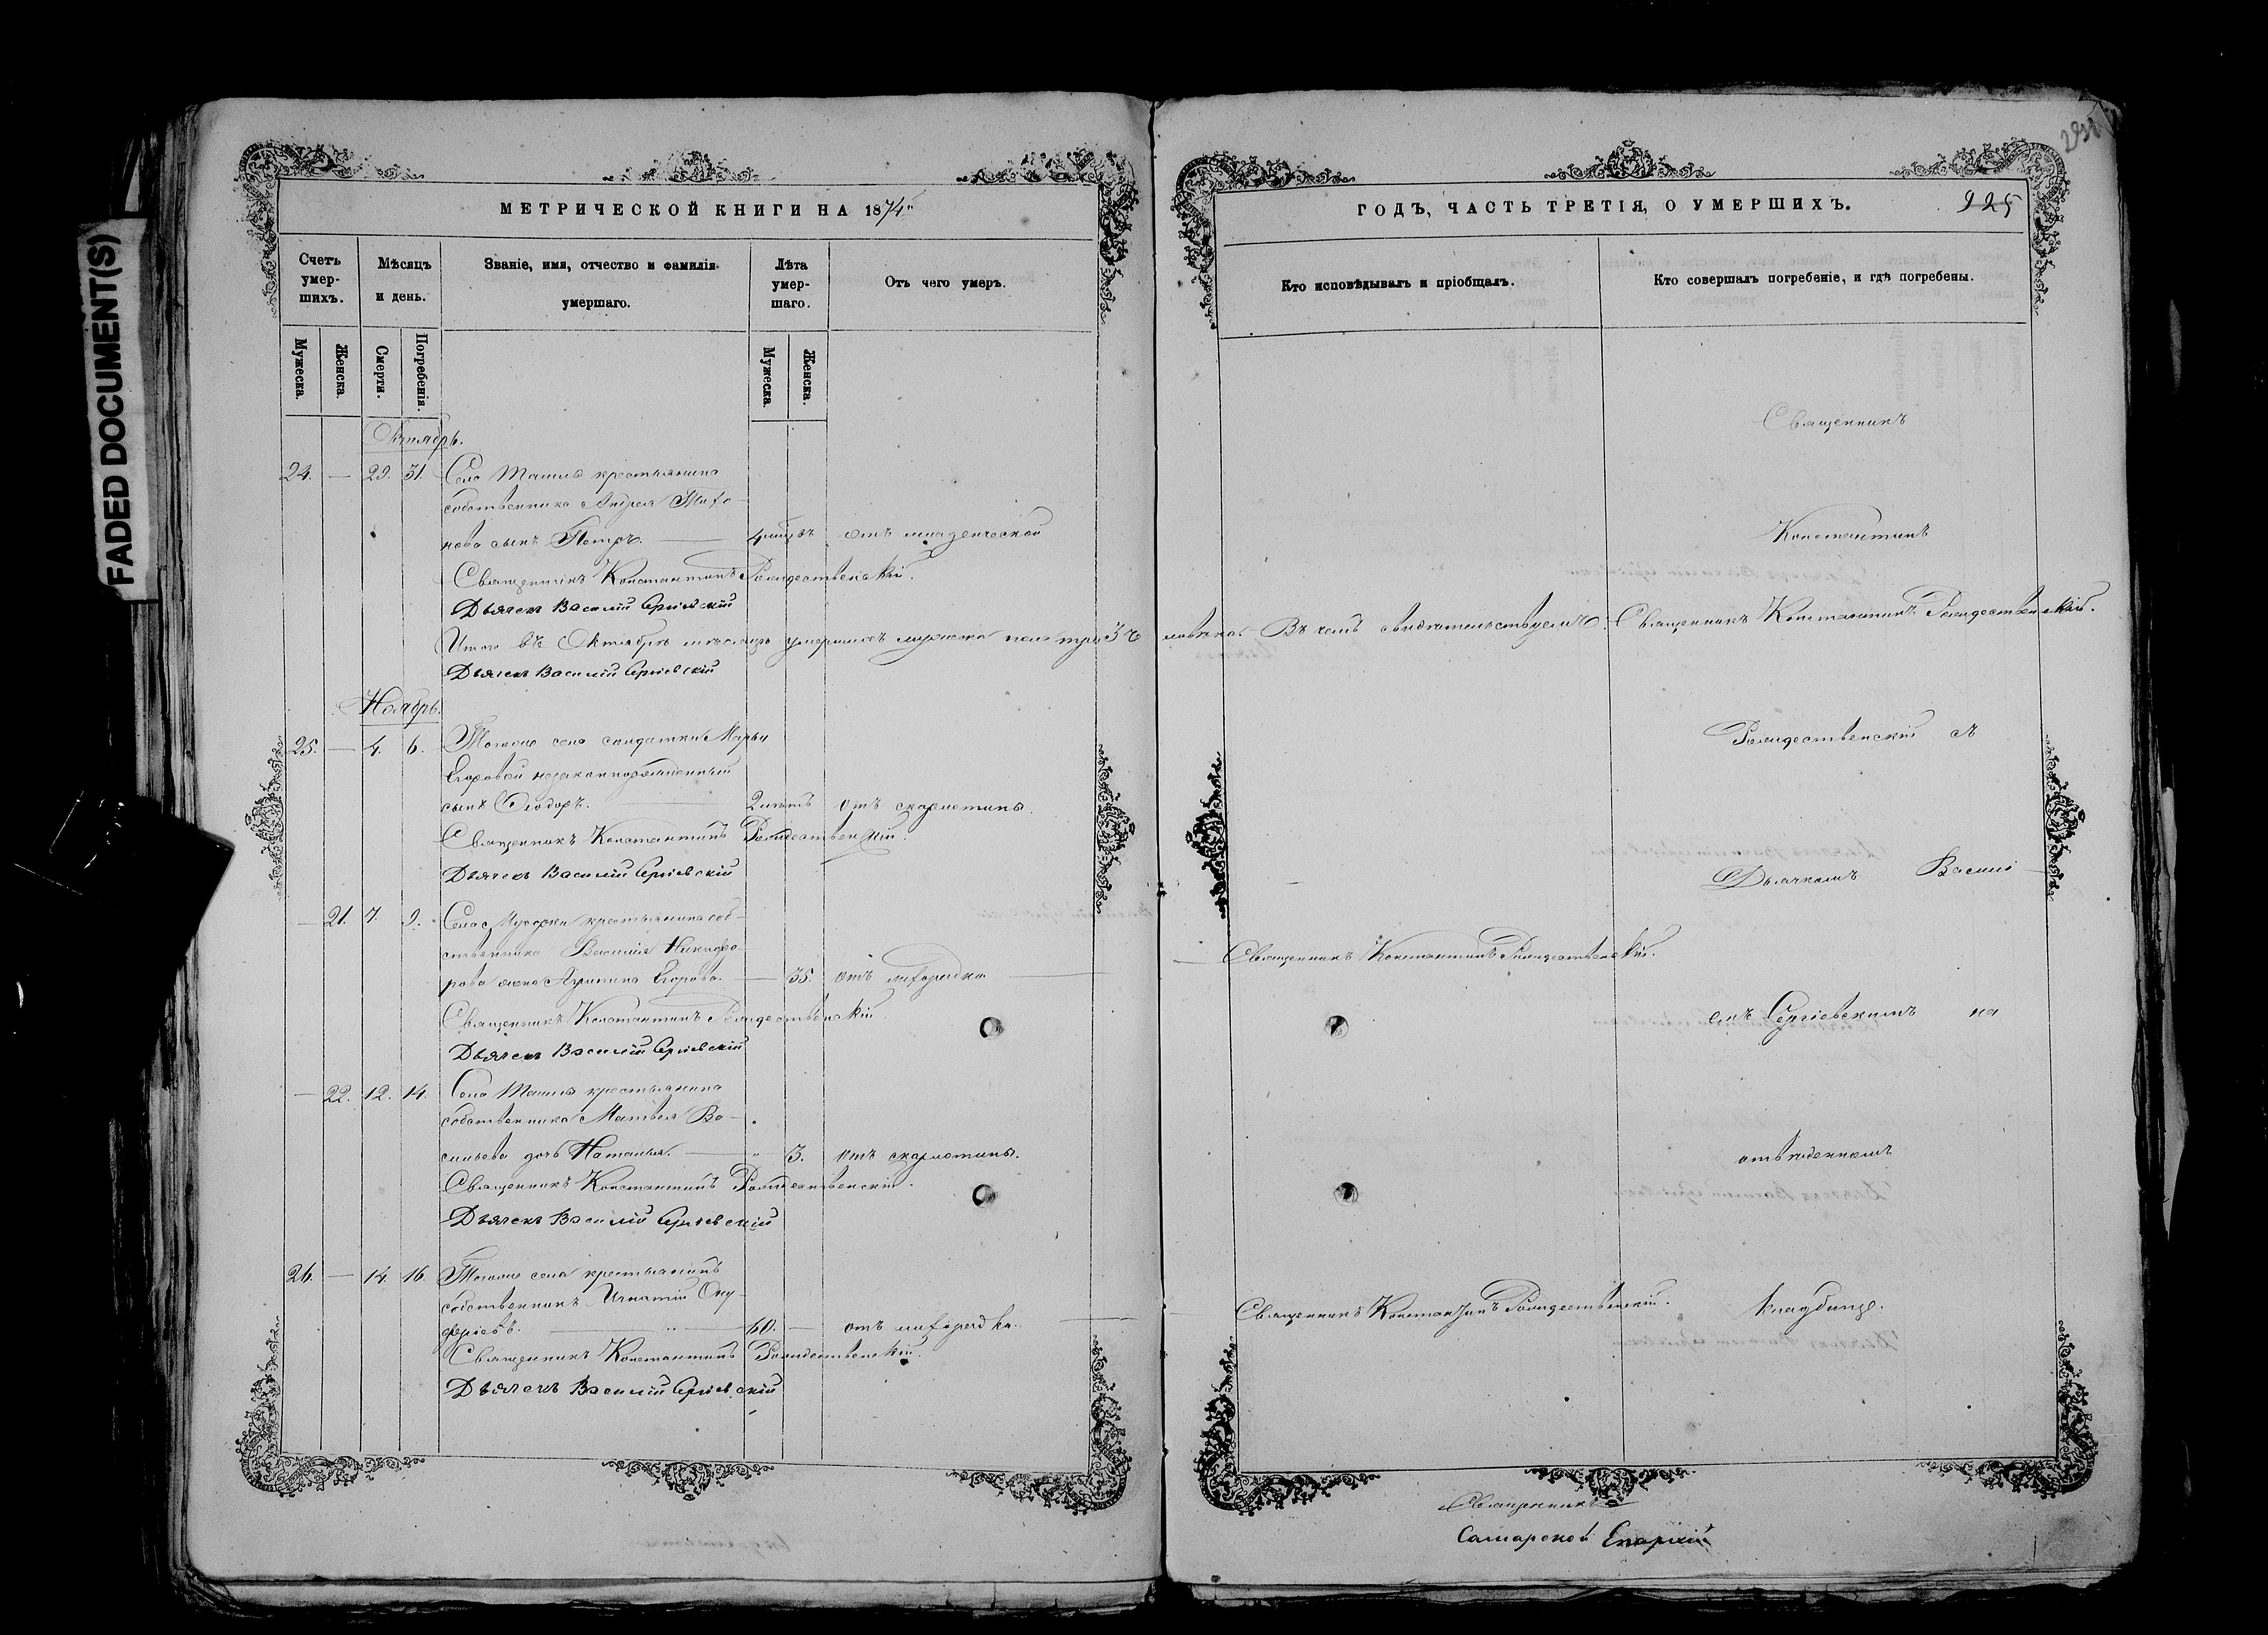 FADED DOCUMENT(S)
МЕТРИЧЕСКОЙ КНИГИ НА 1874
Счетъ умер-шихъ.
Мѣсяцъ и день.
Званіе, имя, отчество и фамилія умершаго.
Лѣта умер-шаго.
Отъ чего умеръ.
Мужеска.
Женска.
Смерти.
Погребенія.
Мужеска.
Женска.
Октябрь.
24. — 29. 31. Села Ташлы крестьянина
собственника Андрея
нова сынъ Петръ. — 4 отъ младенческой
Священникъ Константинъ Рождественскій.
Дьячекъ Василій Сергіевскій
Итого въ Октябрѣ мѣсяцѣ умершихъ мужеска пола три 3 че
Дьячекъ Василій Сергіевскій
Ноябрь.
25. — 4. 6. Тогоже села солдатки Марьи
Егоровой незаконнорожденный
сынъ Ѳеодоръ. 2 лѣтъ отъ скарлотины.
Священникъ Константинъ Рождественскій.
Дьячекъ Василій Сергіевскій
— 21. 7. 9. Села Мусорки крестьянина соб-
ственника Василія Никифо-
рова жена Егорова. — 35. отъ лихорадки
Священникъ Константинъ Рождественскій
Дьячекъ Василій Сергіевскій
— 22. 12. 14. Села Ташлы крестьянина
собственника Матвея Ва-
сильева дочь Наталья. — 3. отъ скарлотины.
Священникъ Константинъ Рождественскій.
Дьячекъ Василій Сергіевскій
26. — 14. 16. Тогоже села крестьянинъ
собственникъ Игнатій Ону-
фріевъ. — 60. — отъ лихорадки.
Священникъ Константинъ Рождественскій.
Дьячекъ Василій Сергіевскій
ГОДЪ, ЧАСТЬ ТРЕТІЯ, О УМЕРШИХЪ.
225
Кто исповѣдывалъ и пріобщалъ.
Кто совершалъ погребеніе, и гдѣ погребены.
Священникъ
Константинъ
ловѣка. Въ чемъ свидѣтельствуемъ: Священникъ Константинъ Рождественскій.
Рождественскій съ
Дьячкомъ Василі-
Священникъ Константинъ Рождественскій.
емъ Сергіевскимъ на
отведенномъ
Священникъ Константинъ Рождественскій.
кладбище.
Священникъ
Самарской Епархіи